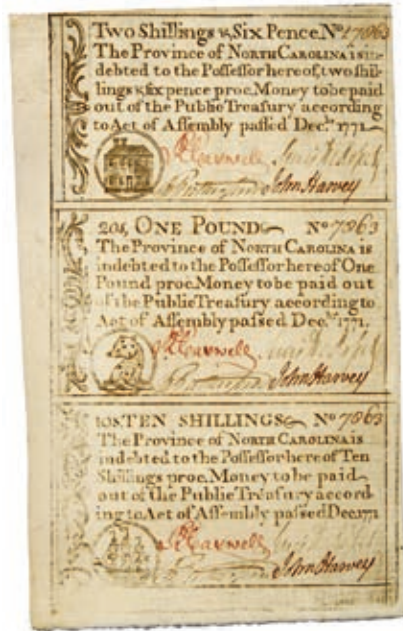 Two Shillings & Six Pence. No 17063
The Province of NORTH CAROLINA is in-
debted to the Possessor hereof, two shil-
lings & six pence proc. Money to be paid
out of the Public Treasury according
to Act of Assembly passed Decr. 1771
John Harvey
20s, ONE POUND No 7063
The Province of NORTH CAROLINA is
indebted to the Possessor hereof One
Pound proc. Money to be paid out
of the Public Treasury according to
Act of Assembly passed Decr. 1771.
John Harvey
10s TEN SHILLINGS No 7063
The Province of NORTH CAROLINA is
indebted to the Possessor hereof Ten
Shillings proc. Money to be paid
out of the Public Treasury accord-
ing to Act of Assembly passed Dec. 1771
John Harvey